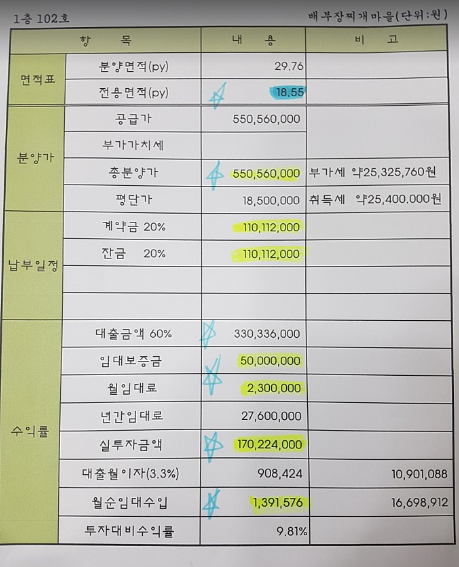 1층 102호 배부장찌개마을(단위:원)
항 목 내 용 비 고
면적표
분양면적(py) 29.76
전용면적(py) 18.55
분양가
공급가 550,560,000
부가가치세
총분양가 550,560,000 부가세 약25,325,760원
평단가 18,500,000 취득세 약25,400,000원
납부일정
계약금 20% 110,112,000
잔금 20% 110,112,000
수익률
대출금액 60% 330,336,000
임대보증금 50,000,000
월임대료 2,300,000
년간임대료 27,600,000
실투자금액 170,224,000
대출월이자(3.3%) 908,424 10,901,088
월순임대수입 1,391,576 16,698,912
투자대비수익률 9.81%